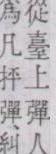 從臺上彈人
為凡抨彈糾